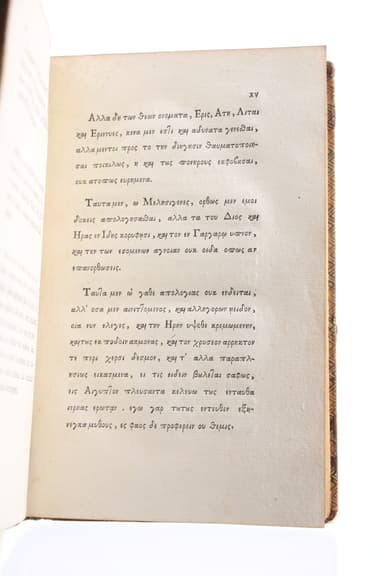 xv
Αλλα δη των θεων ονοματα, Ερις, Ατη, Λιται
και Εριννυες, κενα μεν εστι και αδυνατα γενεσθαι,
αλλα μεντοι προς το την διηγησιν θαυματοποιη-
σαι ποικιλως, η και τους πονηρους εκφοβησαι,
ουκ ατοπως ευρημενα.
Ταυτα μεν, ω Μελησιγενες, ορθως μεν εμοι
δοκεις απολογεισθαι, αλλα τα του Διος και
Ηρας εν Ιδης κορυφησι, και τον εν Γαργαρω υπνον,
και την των εσομενων αγνοιαν ουκ οιδα οπως αν
επανορθωσεις.
Ταυτα μεν ω γαθε απολογιας ουκ ενδειται,
αλλ' οσα μεν αινιττομενος, και αλληγορων ηειδον,
οια νυν ελεγες, και την Ηρην υψοθε κρεμωμενην,
και τους εκ ποδοιν ακμονας, και τον χρυσεον αρρηκτον
τε περι χερσι δεσμον, και τ' αλλα παραπλ-
ησιως εικασμενα, ει τις ειδειν βουλεται σαφως,
εις Αιγυπτον πλευσαντα κελευω της ενταυθα
ειρεας ερωταν. εγω γαρ τουτης εντευθεν εξη-
νεγκα μυθους, ες φαος δε προφερειν ου θεμις.